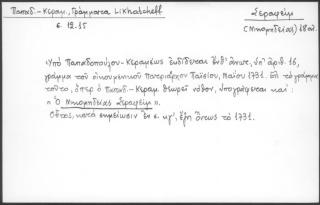 Παπαδ.-Κεραμ., Γράμματα Likhatcheff
Σεραφείμ
σ. 12.15
(Νικομηδείας) 18ος αἰ.
«Ὑπὸ Παπαδοπούλου-Κεραμέως ἐκδίδεται ἔνθ' ἄνωτ., ὑπ' ἀριθ. 16,
γράμμα τοῦ οἰκουμενικοῦ Πατριάρχου Παϊσίου, Μαΐου 1731. Ἐπὶ τὸ γράμμα
τοῦτο, ὅπερ ὁ Παπαδ.-Κεραμ. θεωρεῖ νόθον, ὑπογράφεται καὶ:
«Ὁ Νικομηδείας Σεραφείμ».
Οὗτος, κατὰ σημείωσιν ἐν σ. κγ', ἔζη ὄντως τὸ 1731.